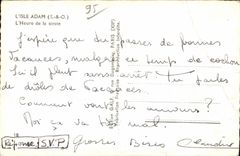 L'ISLE ADAM (S.-&-O.)
L'Heure de la sieste
95
J'espère que tu passes de bonnes
vacances, malgré ce temps de cochon
Ici il pleut sans arrêt. Tu parles
de drôles de vacances
Comment vont les amours?
Moi ça va très mal.
Réponse S.V.P
Grosses Bises Claudine